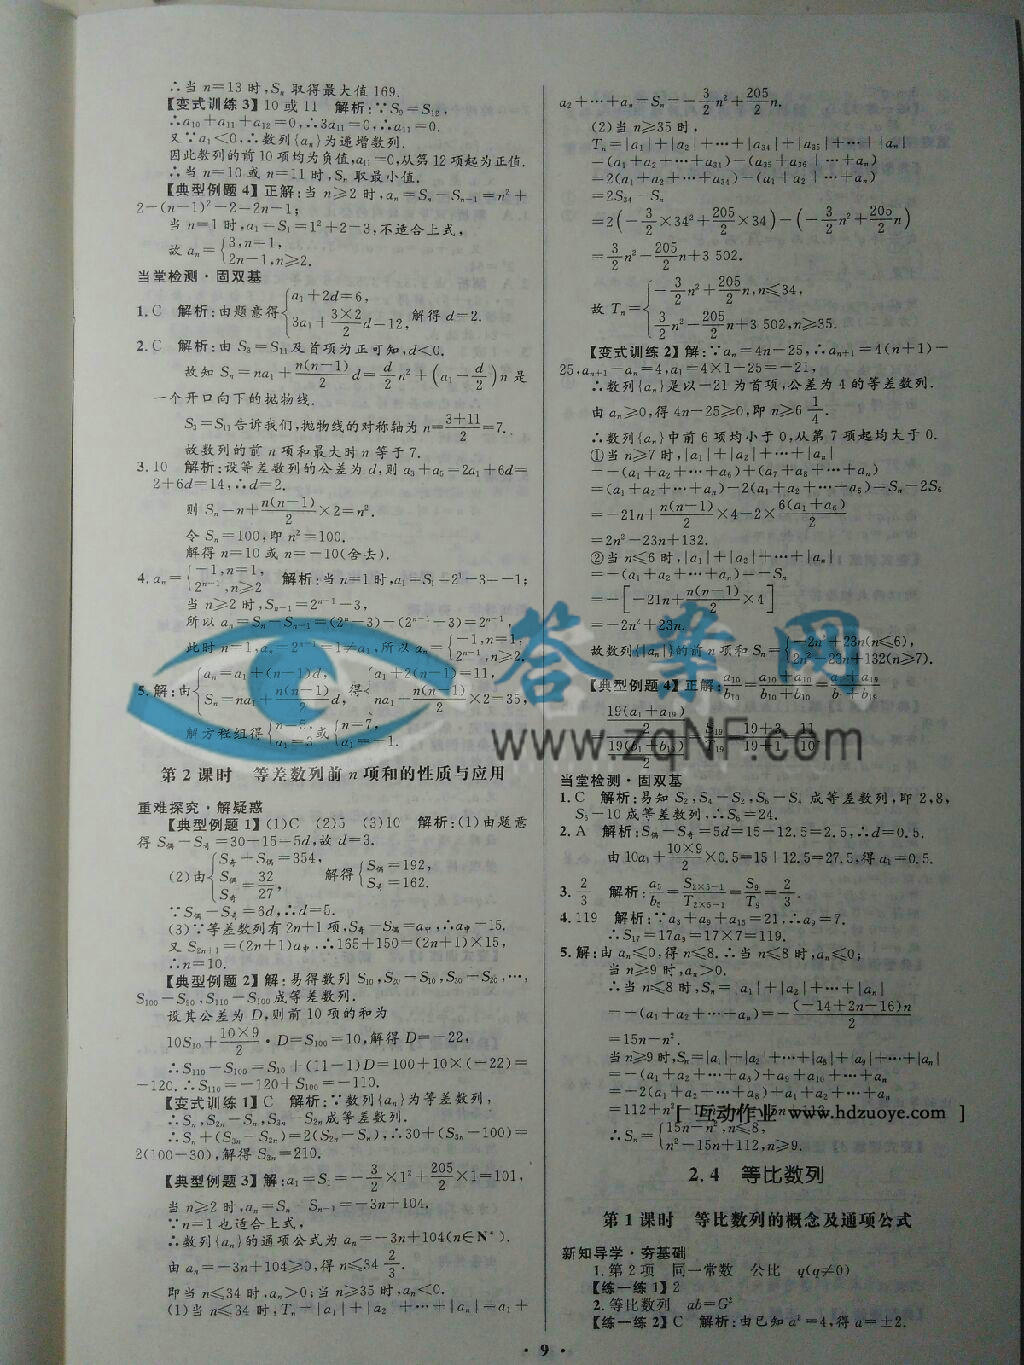 ∴当 n=13 时,Sₙ 取得最大值 169.
【变式训练 3】10 或 11 解析:∵S₉=S₁₂,
∴a₁₀+a₁₁+a₁₂=0,∴3a₁₁=0,∴a₁₁=0.
又∵a₁<0,∴数列{aₙ}为递增数列.
因此数列的前 10 项均为负值,a₁₁=0,从第 12 项起为正值.
∴当 n=10 或 n=11 时,Sₙ 取最小值.
【典型例题 4】正解:当 n≥2 时,aₙ=Sₙ-Sₙ₋₁=n²+
2-(n-1)²-2=2n-1;
当 n=1 时,a₁=S₁=1²+2=3,不适合上式,
故 aₙ={3,n=1, 2n-1,n≥2.
当堂检测·固双基
1.C 解析:由题意得{a₁+2d=6, 3a₁+(3×2)/2 d=12, 解得 d=2.
2.C 解析:由 S₃=S₁₁及首项为正可知,d<0.
故知 Sₙ=na₁+n(n-1)/2 d=d/2 n²+(a₁-d/2)n 是
一个开口向下的抛物线.
S₃=S₁₁告诉我们,抛物线的对称轴为 n=(3+11)/2=7.
故数列的前 n 项和最大时 n 等于 7.
3.10 解析:设等差数列的公差为 d,则 a₃+a₅=2a₁+6d=
2+6d=14,∴d=2.
则 Sₙ=n+n(n-1)/2×2=n².
令 Sₙ=100,即 n²=100.
解得 n=10 或 n=-10(舍去).
4.aₙ={-1,n=1, 2ⁿ⁻¹,n≥2 解析:当 n=1 时,a₁=S₁=2¹-3=-1;
当 n≥2 时,Sₙ₋₁=2ⁿ⁻¹-3,
所以 aₙ=Sₙ-Sₙ₋₁=(2ⁿ-3)-(2ⁿ⁻¹-3)=2ⁿ⁻¹,
此时 n=1,aₙ=2ⁿ⁻¹=1≠a₁,所以 aₙ={-1,n=1, 2ⁿ⁻¹,n≥2.
5.解:由{aₙ=a₁+(n-1)d, Sₙ=na₁+n(n-1)/2 d, 得{a₁+2(n-1)=11, na₁+n(n-1)/2×2=35,
解方程组得{n=5, a₁=3 或{n=7, a₁=-1.
第 2 课时 等差数列前 n 项和的性质与应用
重难探究·解疑惑
【典型例题 1】(1)C (2)5 (3)10 解析:(1)由题意
得 S偶-S奇=30-15=5d,故 d=3.
(2)由{S奇+S偶=354, S偶/S奇=32/27, 解得{S偶=192, S奇=162.
∵S偶-S奇=6d,∴d=5.
(3)∵等差数列有 2n+1 项,S奇-S偶=a中,∴a中=15.
又 S₂ₙ₊₁=(2n+1)a中,∴165+150=(2n+1)×15,
∴n=10.
【典型例题 2】解:易得数列 S₁₀,S₂₀-S₁₀,S₃₀-S₂₀,…,
S₁₀₀-S₉₀,S₁₁₀-S₁₀₀成等差数列.
设其公差为 D,则前 10 项的和为
10S₁₀+(10×9)/2·D=S₁₀₀=10,解得 D=-22,
∴S₁₁₀-S₁₀₀=S₁₀+(11-1)D=100+10×(-22)=
-120.∴S₁₁₀=-120+S₁₀₀=-110.
【变式训练 1】C 解析:∵数列{aₙ}为等差数列,
∴Sₙ,S₂ₙ-Sₙ,S₃ₙ-S₂ₙ成等差数列.
∴Sₙ+(S₃ₙ-S₂ₙ)=2(S₂ₙ-Sₙ),∴30+(S₃ₙ-100)=
2(100-30),解得 S₃ₙ=210.
【典型例题 3】解:a₁=S₁=-3/2×1²+205/2×1=101,
当 n≥2 时,aₙ=Sₙ-Sₙ₋₁=-3n+104.
∵n=1 也适合上式,
∴数列{aₙ}的通项公式为 aₙ=-3n+104(n∈N*).
由 aₙ=-3n+104≥0,得 n≤34 2/3.
即当 n≤34 时,aₙ>0;当 n≥35 时,aₙ<0.
(1)当 n≤34 时,Tₙ=|a₁|+|a₂|+…+|aₙ|=a₁+
a₂+…+aₙ=Sₙ=-3/2 n²+205/2 n.
(2)当 n≥35 时,
Tₙ=|a₁|+|a₂|+…+|a₃₄|+|a₃₅|+…+|aₙ|
=(a₁+a₂+…+a₃₄)-(a₃₅+a₃₆+…+aₙ)
=2(a₁+a₂+…+a₃₄)-(a₁+a₂+…+aₙ)
=2S₃₄-Sₙ
=2(-3/2×34²+205/2×34)-(-3/2 n²+205/2 n)
=3/2 n²-205/2 n+3 502.
故 Tₙ={-3/2 n²+205/2 n,n≤34, 3/2 n²-205/2 n+3 502,n≥35.
【变式训练 2】解:∵aₙ=4n-25,∴aₙ₊₁=4(n+1)-
25,aₙ₊₁-aₙ=4,a₁=4×1-25=-21,
∴数列{aₙ}是以-21 为首项,公差为 4 的等差数列.
由 aₙ≥0,得 4n-25≥0,即 n≥6 1/4.
∴数列{aₙ}中前 6 项均小于 0,从第 7 项起均大于 0.
①当 n≥7 时,|a₁|+|a₂|+…+|aₙ|
=-(a₁+a₂+…+a₆)+(a₇+a₈+…+aₙ)
=(a₁+a₂+…+aₙ)-2(a₁+a₂+…+a₆)=Sₙ-2S₆
=-21n+n(n-1)/2×4-2×6(a₁+a₆)/2
=2n²-23n+132.
②当 n≤6 时,|a₁|+|a₂|+…+|aₙ|
=-(a₁+a₂+…+aₙ)=-Sₙ
=-[-21n+n(n-1)/2×4]
=-2n²+23n.
故数列{|aₙ|}的前 n 项和 Sₙ={-2n²+23n(n≤6), 2n²-23n+132(n≥7).
【典型例题 4】正解:a₁₀/b₁₀=(a₁₀+a₁₀)/(b₁₀+b₁₀)=(a₁+a₁₉)/(b₁+b₁₉)
=(19(a₁+a₁₉)/2)/(19(b₁+b₁₉)/2)=S₁₉/T₁₉=(19+3)/(19+1)=11/10.
当堂检测·固双基
1.C 解析:易知 S₂,S₄-S₂,S₆-S₄ 成等差数列,即 2,8,
S₆-10 成等差数列,∴S₆=24.
2.A 解析:S偶-S奇=5d=15-12.5=2.5,∴d=0.5.
由 10a₁+(10×9)/2×0.5=15+12.5=27.5,得 a₁=0.5.
3. 2/3 解析:a₅/b₅=S₂ₓ₅₋₁/T₂ₓ₅₋₁=S₉/T₉=2/3.
4.119 解析:∵a₃+a₉+a₁₅=21,∴a₉=7.
∴S₁₇=17a₉=17×7=119.
5.解:由 aₙ≤0,得 n≤8.∴当 n≤8 时,aₙ≤0;
当 n≥9 时,aₙ>0.
∴当 n≤8 时,Sₙ=|a₁|+|a₂|+…+|aₙ|
=-(a₁+a₂+…+aₙ)=-(-14+2n-16)n/2
=15n-n².
当 n≥9 时,Sₙ=|a₁|+|a₂|+…+|a₈|+|a₉|+…+|aₙ|
=-(a₁+a₂+…+a₈)+a₉+a₁₀+…+aₙ
=-2(a₁+a₂…+a₈)+a₁+a₂+…+aₙ
=112+n²-15n=n²-15n+112.
∴Sₙ={15n-n²,n≤8, n²-15n+112,n≥9.
2.4 等比数列
第 1 课时 等比数列的概念及通项公式
新知导学·夯基础
1.第 2 项 同一常数 公比 q(q≠0)
【练一练 1】2
2.等比数列 ab=G²
【练一练 2】C 解析:由已知 a²=4,得 a=±2.
· 9 ·
答案网
www.zqNF.com
[ 互动作业 www.hdzuoye.com ]